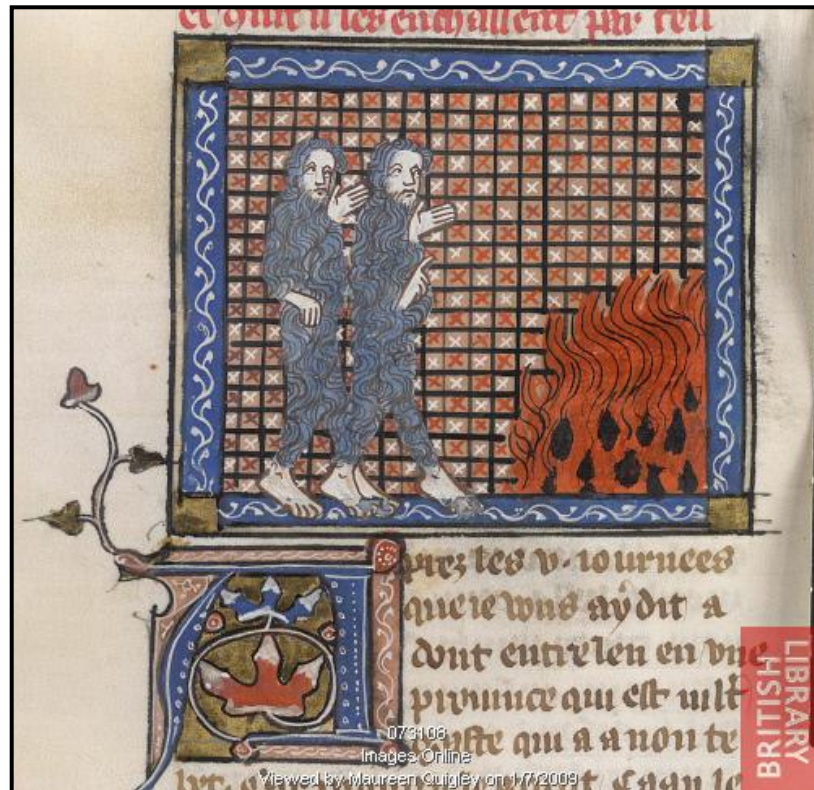 et
les enchassent par feu
prez les v. iournees
que ie vous ay dit a
dont entre len en vne
prouince qui est mlt
qui a a non te
BRITISH LIBRARY
073108
Images Online
Viewed by Maureen Quigley on 1/7/2009